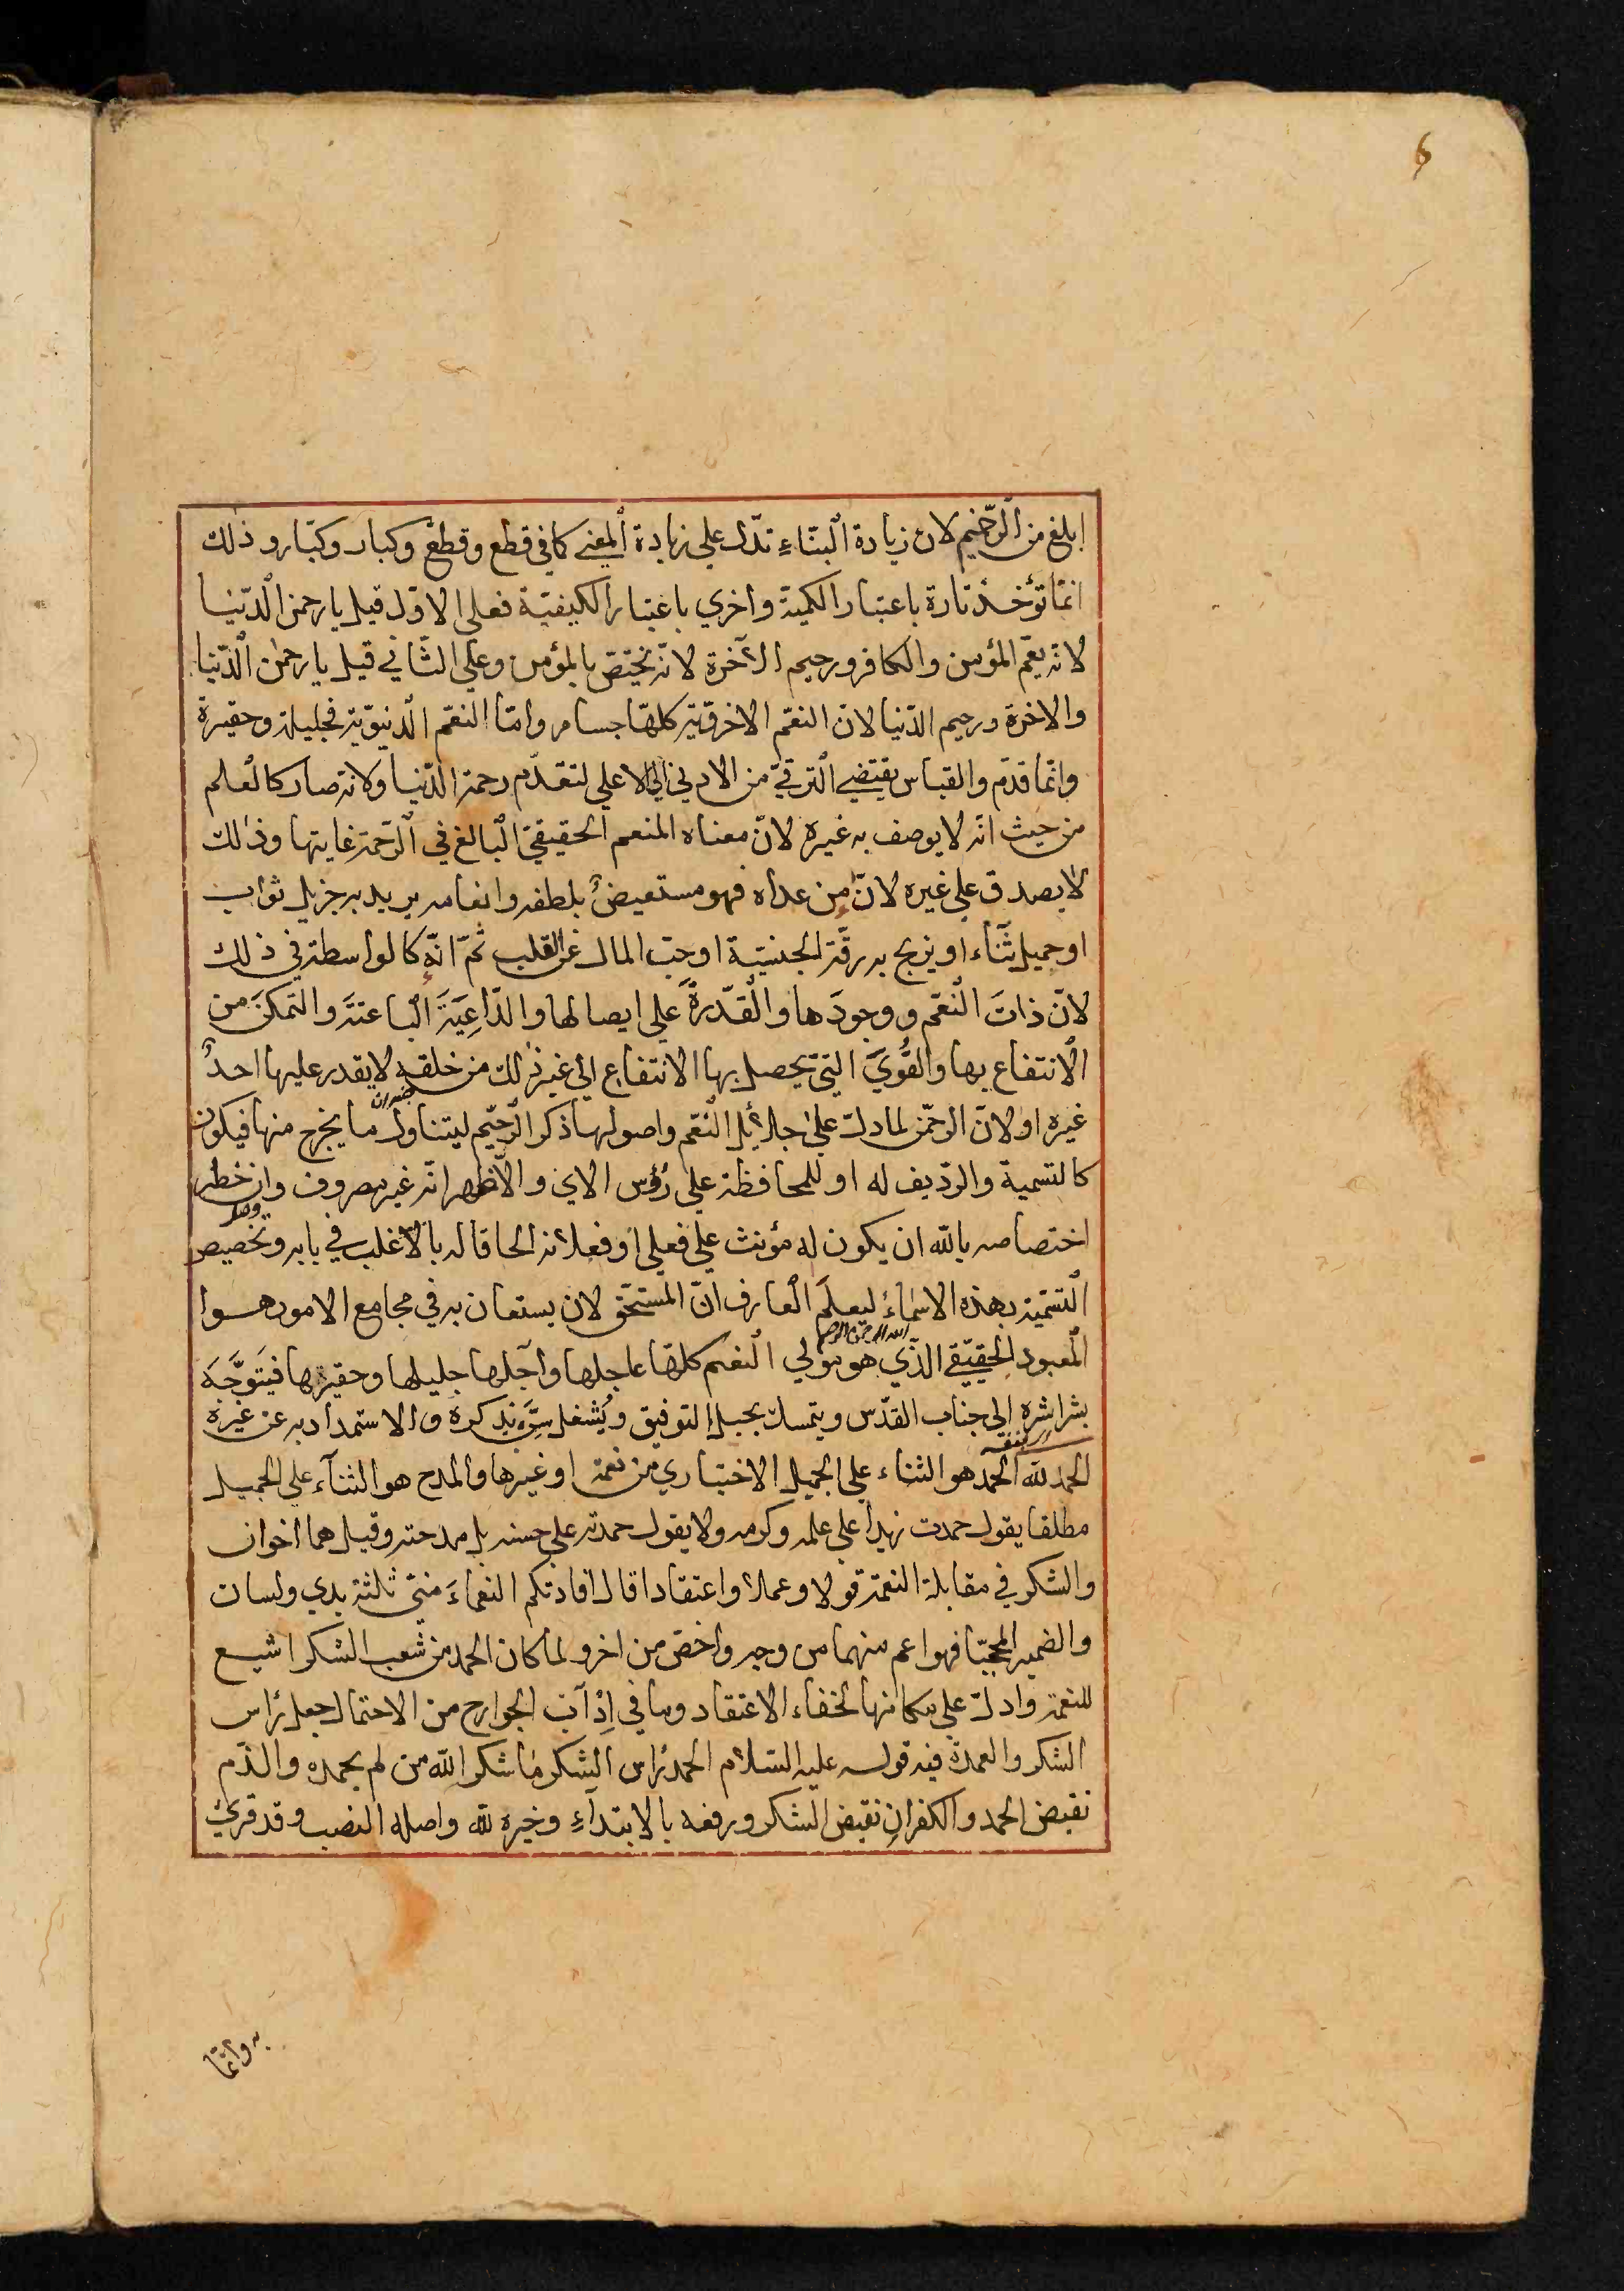 ابلغ من الرّحيم لان زيادة البنآءِ تدّل علي زيادة المعني كما في قطع وقطّع وكبار وكبّار وذلك
انّما تؤخذ تارة باعتبار الكمية واخري باعتبار الكيفيّة فعلي الاوّل قيل يا رحمن الدّنيا
لانه يعّم المؤمن والكافر ورحيم الآخرة لانّه يختص بالمؤمن وعلي الثّاني قيل يا رحمٰن الدّنيا
والاخرة ورحيم الدّنيا لانّ النعّم الاخرويّة كلهّا جسام وامّا النعّم الدنيويّة فجليلة وحقيرة
وانّما قدّم والقياس يقتضي التّرقيّ من الادني الي الاعلي لتقدّم رحمة الدّنيا ولانّه صار كالعلم
من حيث انّه لا يوصف به غيره لانّ معناه المنعم الحقيقيّ البالغ في الرّحمة غايتها وذٰلك
لا يصدق علي غيره لانّ من عداه فهو مستعيضٌ بلطفه وانعامه يريد به جزيل ثواب
او جميل ثنآءً او يزيح به رقّة الجنسيّة او حبّ المال عن القلب ثمّ انّه كالواسطة في ذلك
لانّ ذاتَ النّعّم ووجودَها والقدّرةَ علي ايصالها والدّاعِيَةَ الباعثةَ والتمكنَ من
الانتفاع بها والقُوَيَ التيّ يحصل بها الانتفاع الي غير ذٰلك من خلقه لا يقدر عليها احدٌ
غيره او لانّ الرحمّن لما دلّ علي جلائل النّعّم واصولها ذكر الرّحيّم ليتناول ما يخرج منها فيكون
كالتسمية والرّديف له او للمحافظة علي رُؤس الاي والاّظهر انّه غير مصروف وان خطر
اختصاصه بالله ان يكون له مؤنث علي فعلي او فعلانة الحاقا له بالاّغلب في بابه وتخصيص
التسّمية بهذه الاسماء ليعلَم العارف انّ المستّحق لان يستعان به في مجامع الامور هوا
المعبود الحقيّقي الذّي هو مولي النعم كلهّا عاجلها وآجلها جليلها وحقيرها فيَتوَجَّه
بشراشرِه الي جناب القدّس ويتمسك بحبل التوفيق ويُشغل سِرّه بذكره والاستمداد به عن غيره
الحمد لله الحمد هو الثناء علي الجميل الاختياري من نعمة او غيرها والمدح هو الثنآء علي الجميل
مطلقا يقول حمدت زيدا علي علمه وكرمه ولا يقول حمدته علي حسنه بل مدحته وقيل هما اخوان
والشكر في مقابلة النعمة قولا وعملا واعتقادا قال افادتكم النعماءَ منيّ ثلثة يدي ولسان
والضمير المحجبّا فهو اعم منهما من وجه واخصّ من اخر ولما كان الحمد من شُعب الشكر اشيع
للنعمة وادلّ علي مكانها لخفاء الاعتقاد وما في اِدْآب الجوارح من الاحتمال جعل راس
الشكر والعمدة فيه قوله عليه السّلام الحمد راس الشكر ما شكر الله من لم يحمده والذّم
نقيض الحمد والكفران نقيض الشكر ورفعه بالابتدآءِ وخبره لله واصله النصب وقد قريَ
به وانّما